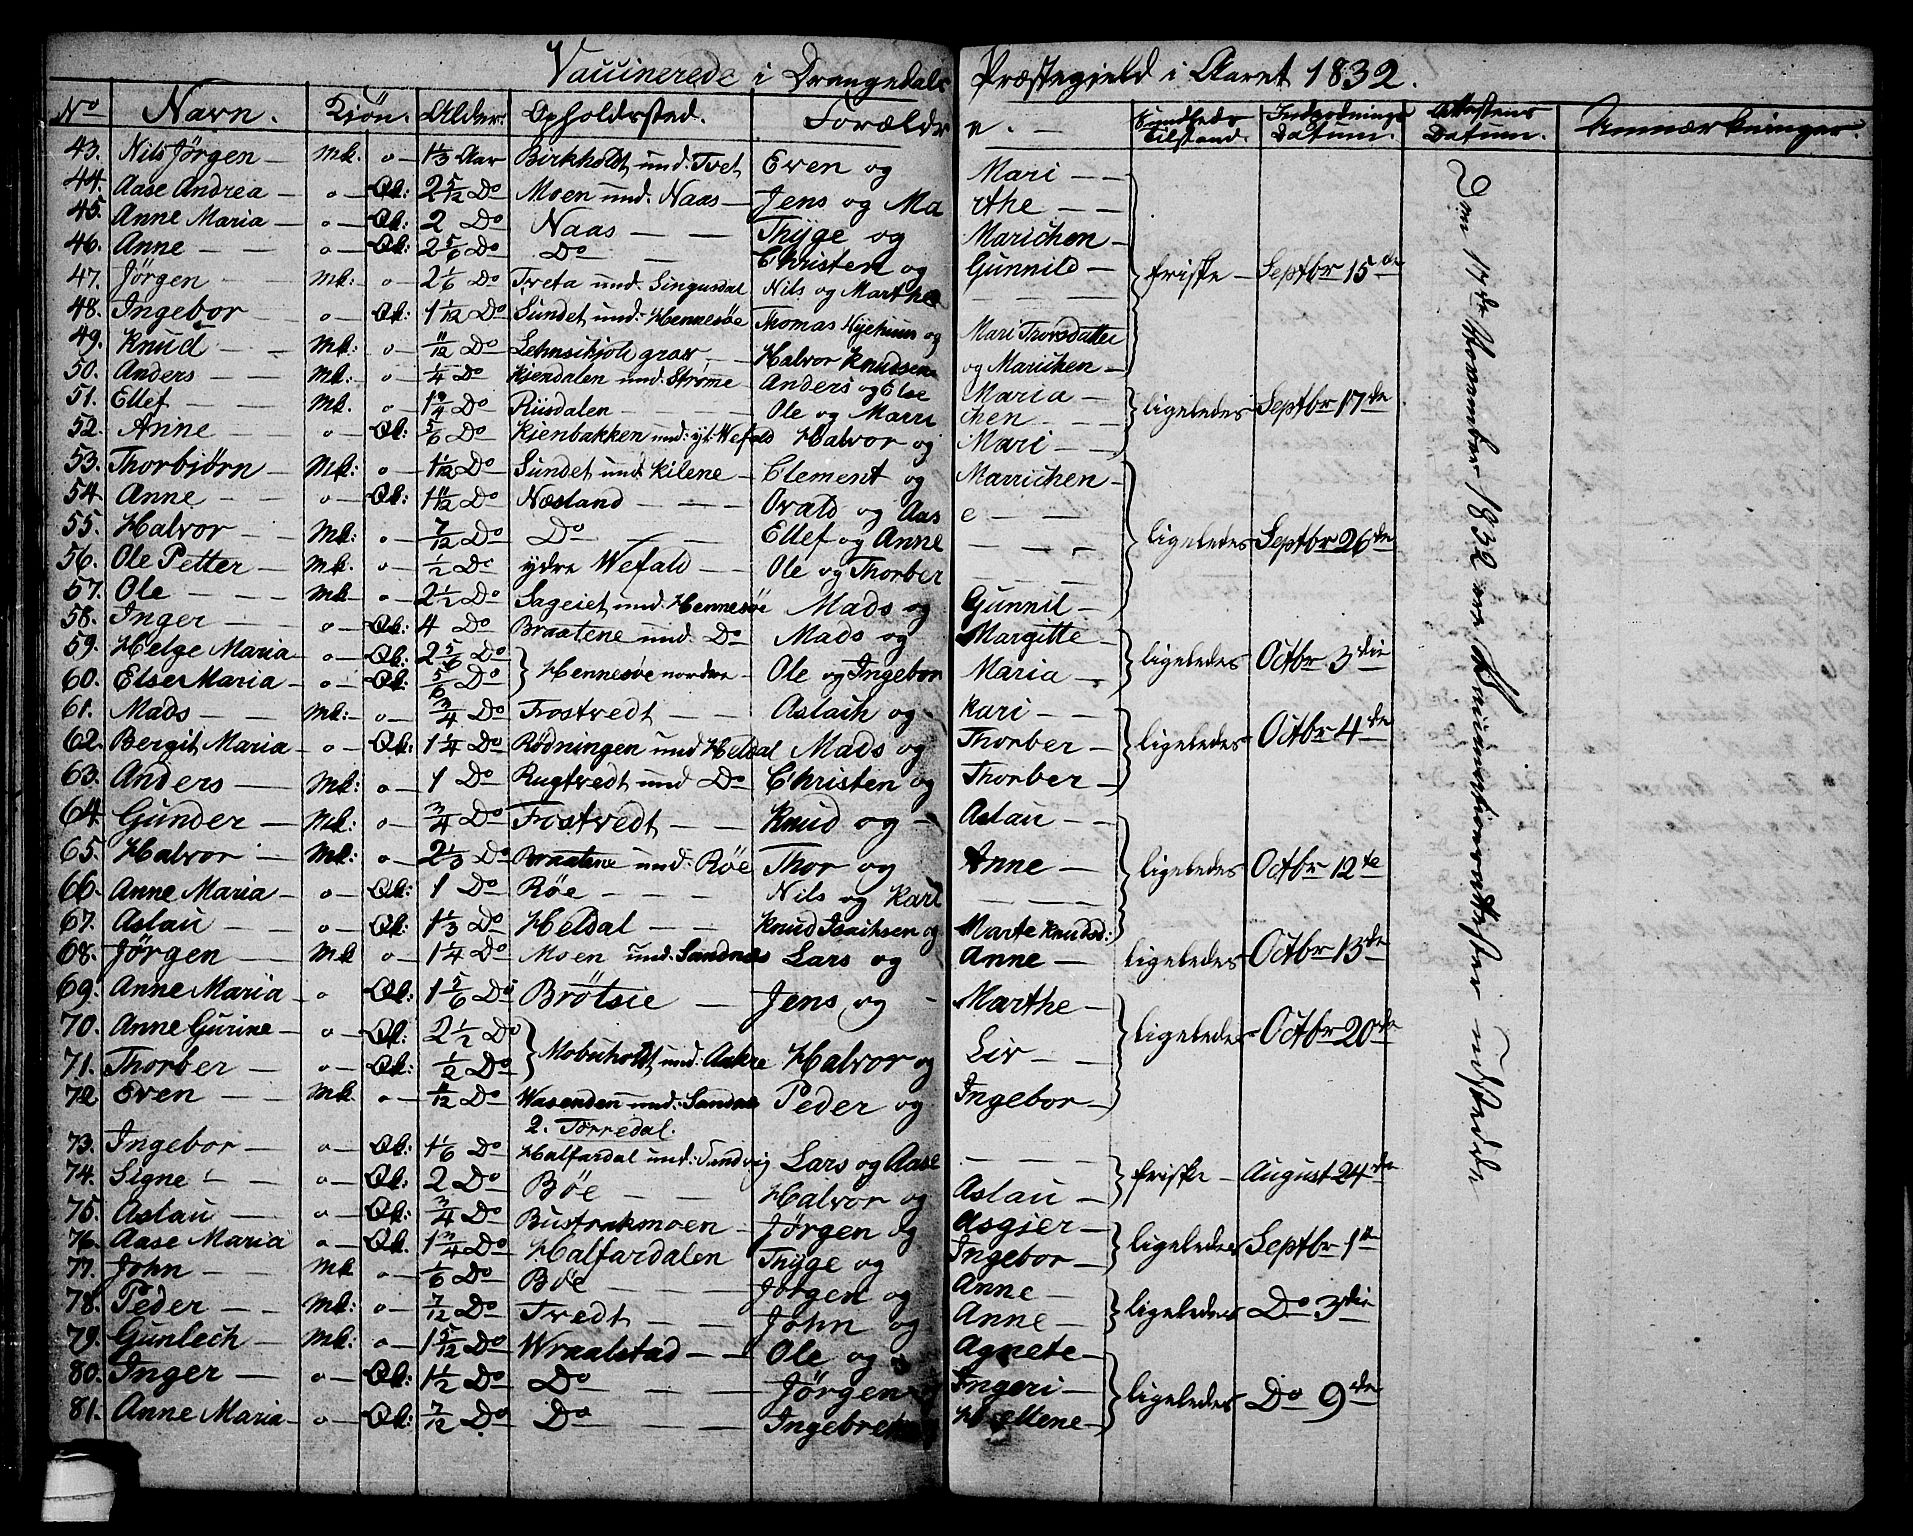 Vaccinerede i Drangedals Præstegield i Aaret 1832.
No Navn. Kiön. Alder. Opholdssted. Forældre. Sundheds Tilstand. Indpodnings Datum. Attestens Datum. Anmærkninger
43. Nils Jörgen Mk. o 1 1/3 Aar Birkholdt und. Tvet Even og Mari
44. Aase Andrea o Qk: 2 5/12 Do Moen und. Naas Jens og Marthe
45. Anne Maria o Qk: 2 Do Naas Thyge og Marichen
46. Anne o Qk: 2 5/6 Do Do Christen og Gunnild friske Septbr 15de
47. Jörgen Mk: o 2 1/6 Do Tveta und. Singusdal Nils og Marthe
48. Ingebor o Qk: 1 1/12 Do Sundet und: Hennesöe Thomas og Mari Thorsdatter
49. Knud Mk: o 11/12 Do Halvor Knudsen og Marichen
50. Anders Mk: o 1/4 Do Kjendalen und. Strömme Anders og Else Maria
51. Ellef Mk. o 1 3/4 Do Riisdalen Ole og Marrichen ligeledes Septbr 17de
52. Anne o Qk: 5/6 Do Kjenbakken und: yt: Wefald Halvor og Mari
53. Thorbjörn Mk: o 1 1/12 Do Sundet und: Kilene Clement og Marrichen
54. Anne o Qk: 1 11/12 Do Næsland Ovald og Aase
55. Halvor Mk: o 7/12 Do Do Ellef og Anne ligeledes Septbr 26de
56. Ole Petter Mk. o 1/2 Do ydre Wefald Ole og Thorber
57. Ole Mk o 2 1/2 Do Sageiet und: Hennesöe Mads og Gunnil
58. Inger o Qk: 4 Do Braatene und: Do Mads og Margitte
59. Helge Maria o Qk: 2 5/6 Do } Hennesöe nordre Ole og Ingebor Maria ligeledes Octbr 3die
60. Else Maria o Qk: 5/6 Do
61. Mads Mk: o 3/4 Do Frostvedt Aslach og Kari
62. Bergit Maria o Qk: 1 1/4 Do Rödningen und Heldal Mads og Thorber ligeledes Octbr 4de
63. Anders Mk: o 1 Do Rugtvedt und: Do Christen og Thorber
64. Gunder Mk: o 3/4 Do Frostvedt Knud og Aslau
65. Halvor Mk: o 2 1/3 Do Braatene und: Röe Thor og Anne ligeledes Octbr 12te
66. Anne Maria o Qk: 1 Do Röe Nils og Kari
67. Aslau o Qk: 1 1/3 Do Heldal Knud Isachsen og Marte Knudsd:
68. Jörgen Mk o 1 1/4 Do Moen und: Sandnes Lars og Anne ligeledes Octbr 13de
69. Anne Maria o Qk: 1 5/6 Do Brötsie Jens og Marthe
70. Anne Gurine o Qk: 2 1/2 Do } Mobuholdt und: Aakre Halvor og Liv ligeledes Octbr 20de
71. Thorber o Qk: 1/2 Do
72 Even Mk o 11/12 Do Wasenden und: Sandnes Peder og Ingebor
2. Törredal.
73. Ingebor o Qk: 1 1/6 Do Halfardal und: Sandvig Lars og Aase
74. Signe o Qk: 2 Do Böe Halvor og Aslau friske August 24de
75. Aslau o Qk: 3/4 Do Bustrakmoen Jörgen og Asgier
76. Aase Maria o Qk. 1 3/4 Do Halfardalen Thyge og Ingebor ligeledes Septbr 1te
77. John Mk o 1/6 Do Böe Jörgen og Anne
78. Peder Mk: o 7/12 Do Tvedt John og Anne ligeledes Do 3die
79. Gunlech Mk: o 1 5/12 Do Wraalstad Ole og Agnete
80. Inger o Qk: 1 1/2 Do Do Jörgen og Ingeri ligeledes Do 9de
81. Anne Maria o Qk: 7/12 Do Do Ingebret
Den 17de November 1832 ere Attester udstedde